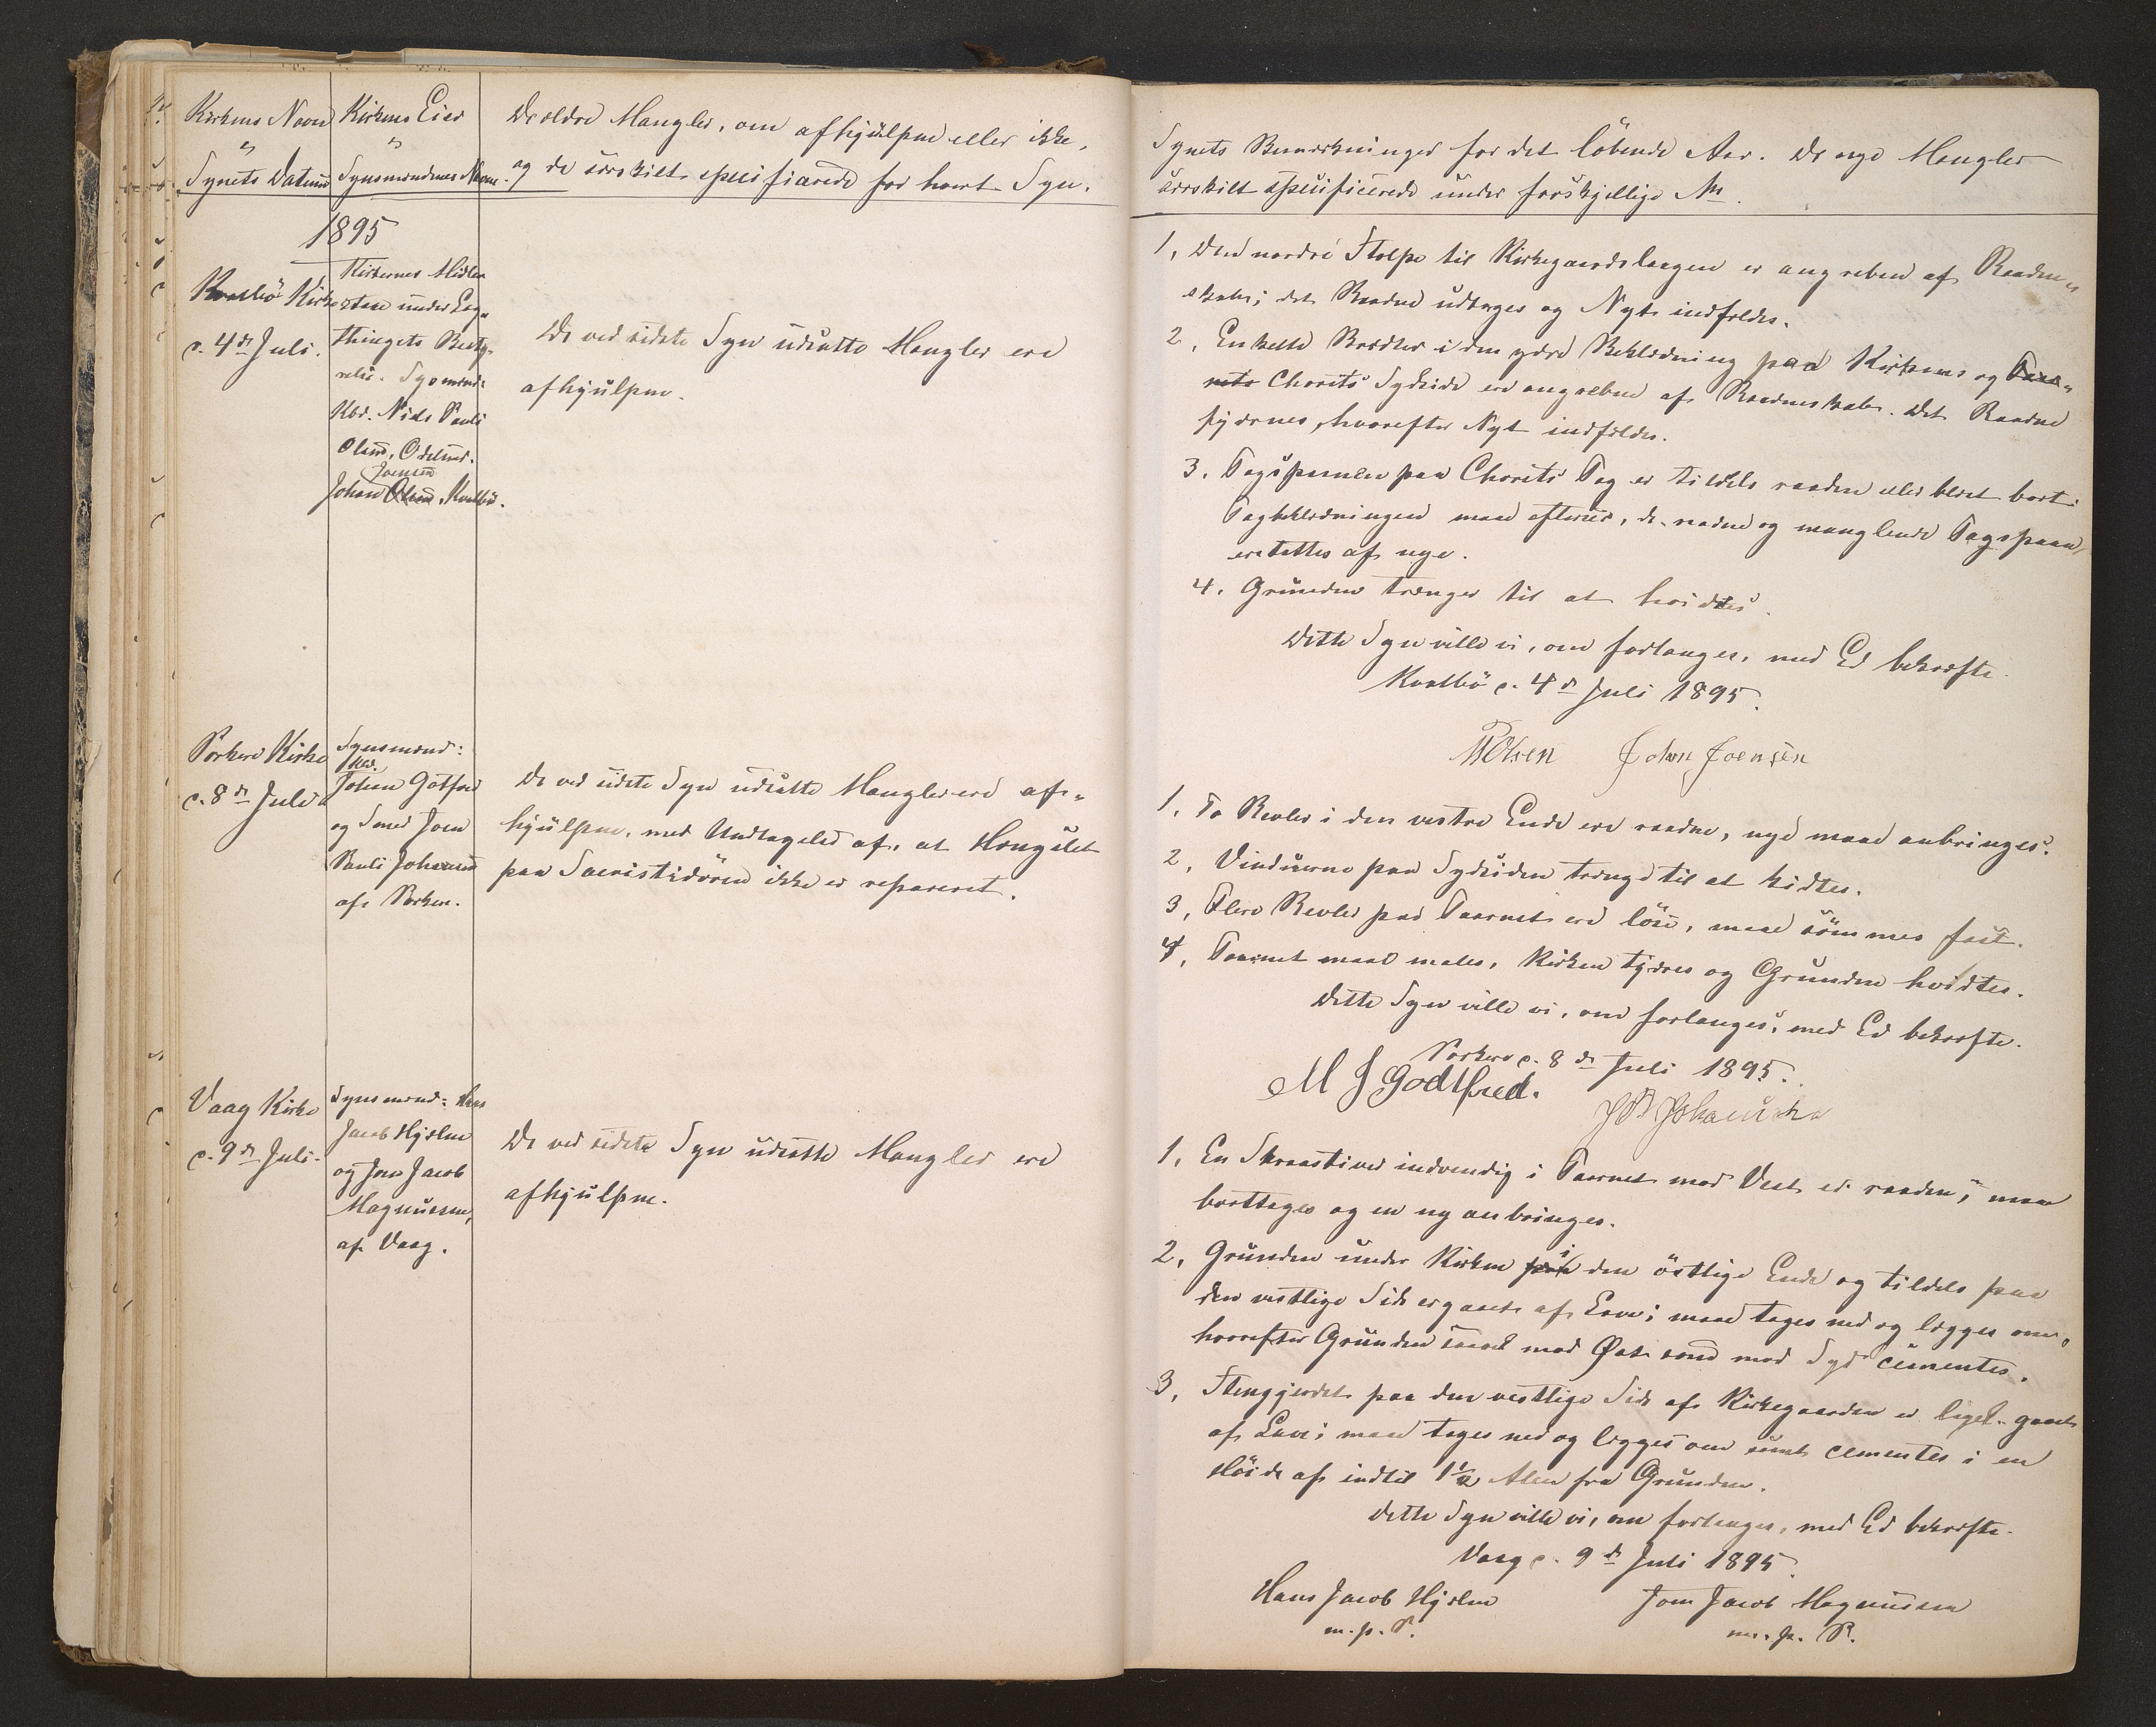 Kirkens Navn
og
Synets Datum
Kirkens Eier
og
Synsmændenes Navne.
De ældre Mangler, om afhjulpne eller ikke,
og de særskilt specificerede for hvert Syn.
1895
Kvalbö Kirke
d. 4de Juli.
Kirkernes Midler
staae under Lag-
thingets Besty-
relse. Synsmænd:
Kbd. Niels Pauli
Olsen,
Joensen
Johan Olsen, Kvalbö.
De ved sidste Syn udsatte Mangler ere
afhjulpne.
Porkere Kirke
d. 8de Juli
Synsmænd:
Johan Gotfred
og Smed Joen
Pauli Johansen
af Porkere.
De ved sidste Syn udsatte Mangler ere af-
hjulpne, med Undtagelse af, at Hængslet
paa Sacristidören ikke er repareret.
Vaag Kirke
d. 9de Juli.
Synsmænd: Hans
Jacob Hjelm
og Joen Jacob
Magnussen,
af Vaag.
De ved sidste Syn udsatte Mangler ere
afhjulpne.
Synets Bemærkninger for det löbende Aar. De nye Mangler
særskilt specificerede under forskjellige No.
1, Den nordre Stolpe til Kirkegaardslaagen er angreben af Raadden-
skab; det Raadne udtages og Nyt indfældes.
2, Enkelte Brædder i den ydre Beklædning paa Kirkens og Taar-
nets Chorets Sydside ere angrebne af Raaddenskab. Det Raadne
fjernes, hvorefter Nyt indfældes.
3, Tagspaanen paa Chorets Tag er tildels raaden eller blæst bort.
Tagbeklædningen maa eftersees, de raadne og manglende Tagspaan
erstattes af nye.
4, Grunden trænger til at hvidtes.
Dette Syn ville vi, om forlanges, med Ed bekræfte.
Kvalbö d. 4de Juli 1895.
NPOlsen Johan Joensen
1, To Revler i den vestre Ende ere raadne, nye maae anbringes.
2, Vinduerne paa Sydsiden trænge til at kidtes.
3, Flere Revler paa Taarnet ere löse, maae sömmes fast.
4, Taarnet maae males, Kirken tjæres og Grunden hvidtes.
Dette Syn ville vi, om forlanges, med Ed bekræfte.
Porkere d. 8de Juli 1895.
M J Godtfred. JP Johansen
1, En Skraastiver indvendig i Taarnet mod Vest er raaden; maa
borttages og en ny anbringes.
2, Grunden under Kirken paa i den östlige Ende og tildels paa
den vestlige Side er gaaet af Lave; maae tages ned og lægges om,
hvorefter Grunden saavel mod Øst som mod Syd cementes.
3, Stengjerdet paa den vestlige Side af Kirkegaarden er ligel. gaaet
af Lave; maae tages ned og lægges om samt cementes i en
Höide af indtil 1½ Alen fra Grunden.
Dette Syn ville vi, om forlanges, med Ed bekræfte.
Vaag d. 9de Juli 1895.
Hans Jacob Hjelm Joen Jacob Magnussen
m. p. P. m. p. P.